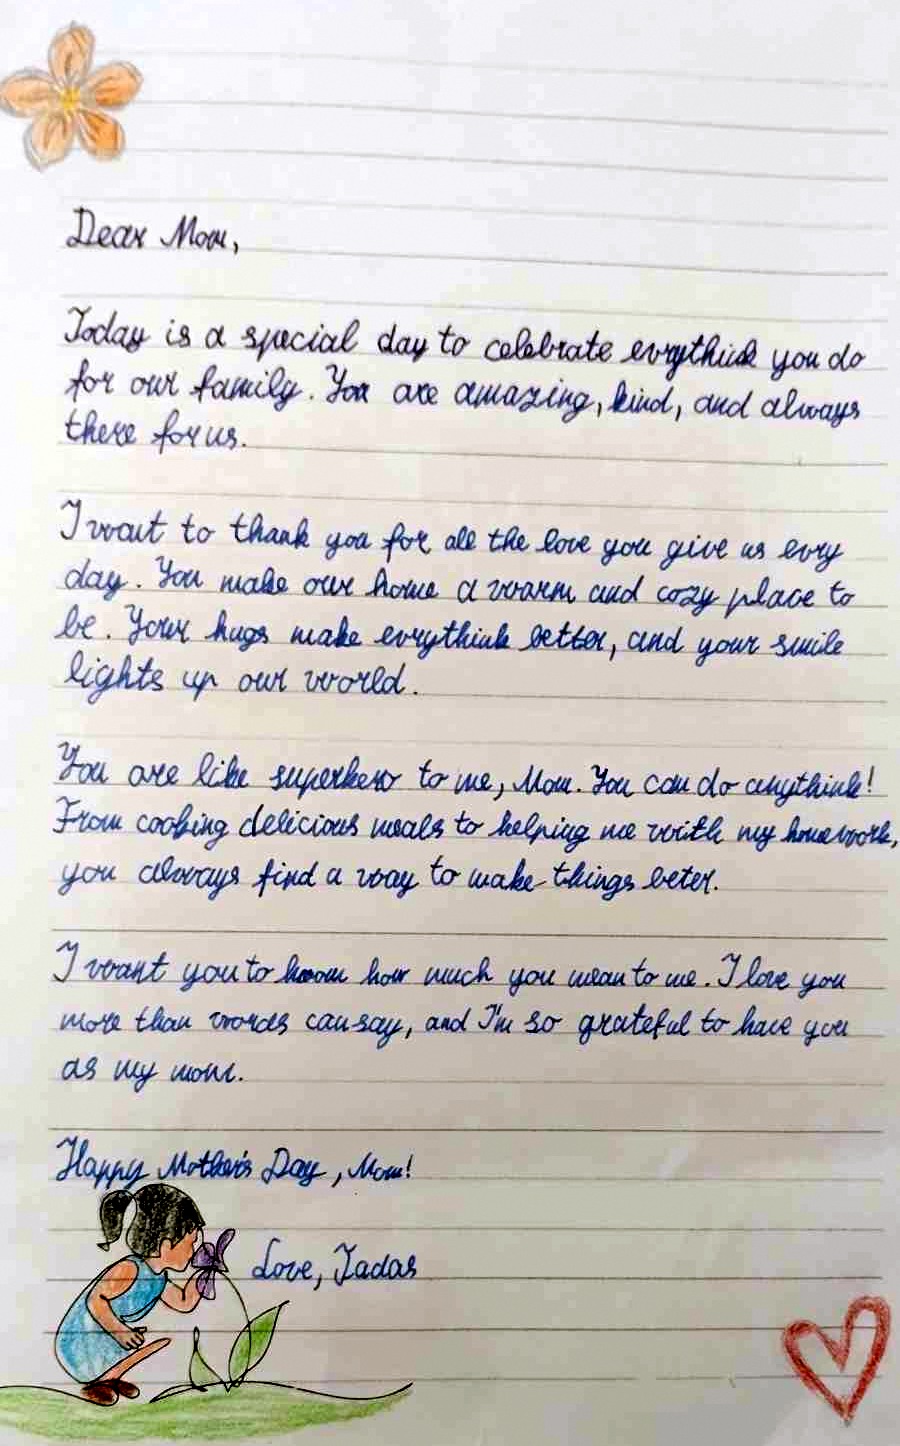 Dear Mom,
Today is a special day to celebrate evrythink you do
for our family. You are amazing, kind, and always
there for us.
I want to thank you for all the love you give us evry
day. You make our home a warm and cozy place to
be. Your hugs make evrythink better, and your smile
lights up our world.
You are like superhero to me, Mom. You can do anythink!
From cooking delicious meals to helping me with my homework,
you always find a way to make things beter.
I want you to know how much you mean to me. I love you
more than words can say, and I'm so grateful to have you
as my mom.
Happy Mother's Day, Mom!
Love, Jadas